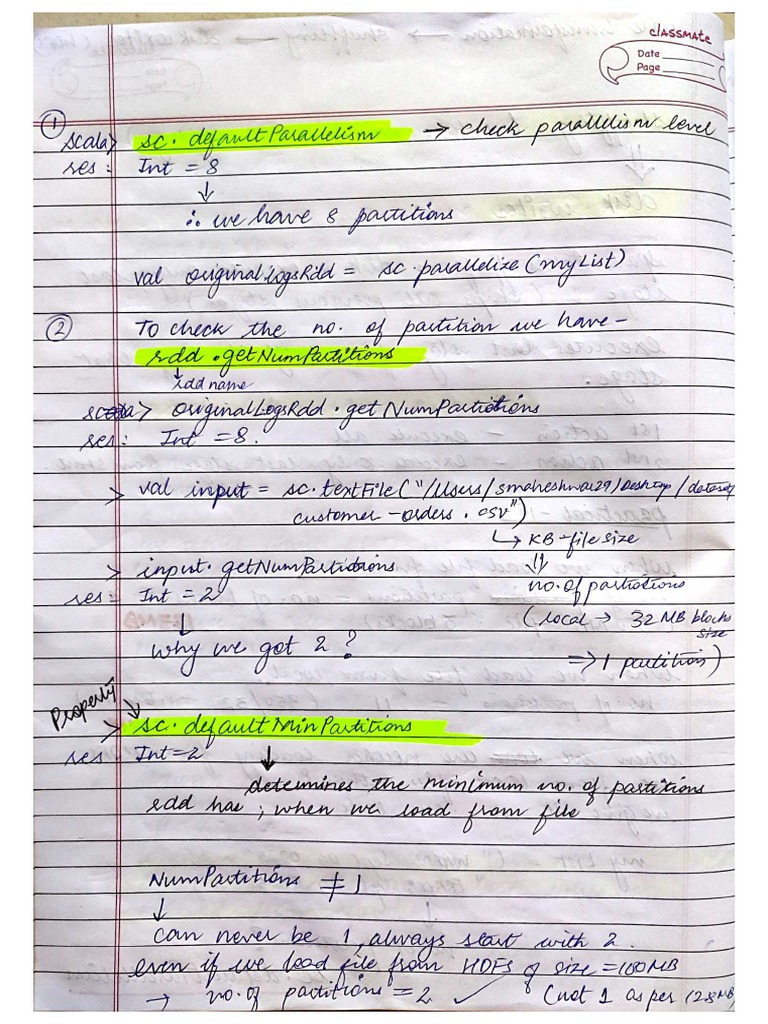 classmate
Date
Page
①
scala> sc.defaultParallelism → check parallelism level
res: Int = 8
↓
∴ we have 8 partitions
val originalLogsRdd = sc.parallelize(myList)
② To check the no. of partition we have-
rdd.getNumPartitions
↓
rdd name
scala> originalLogsRdd.getNumPartitions
res: Int = 8.
> val input = sc.textFile("/Users/smaheshwari29/Desktop/dataset/
customer-orders.csv")
↳ KB-file size
⇓
> input.getNumPartitions
no. of partitions
res: Int = 2
(local → 32 MB blocks
size
↓
why we got 2?
⇒ 1 partition)
Property
> sc.defaultMinPartitions
res Int=2
↓
determines the minimum no. of partitions
rdd has; when we load from file
NumPartitions ≠ 1
↓
can never be 1, always start with 2.
even if we load file from HDFS of size = 100MB
→ no. of partitions = 2 ✓ (not 1 as per 128MB